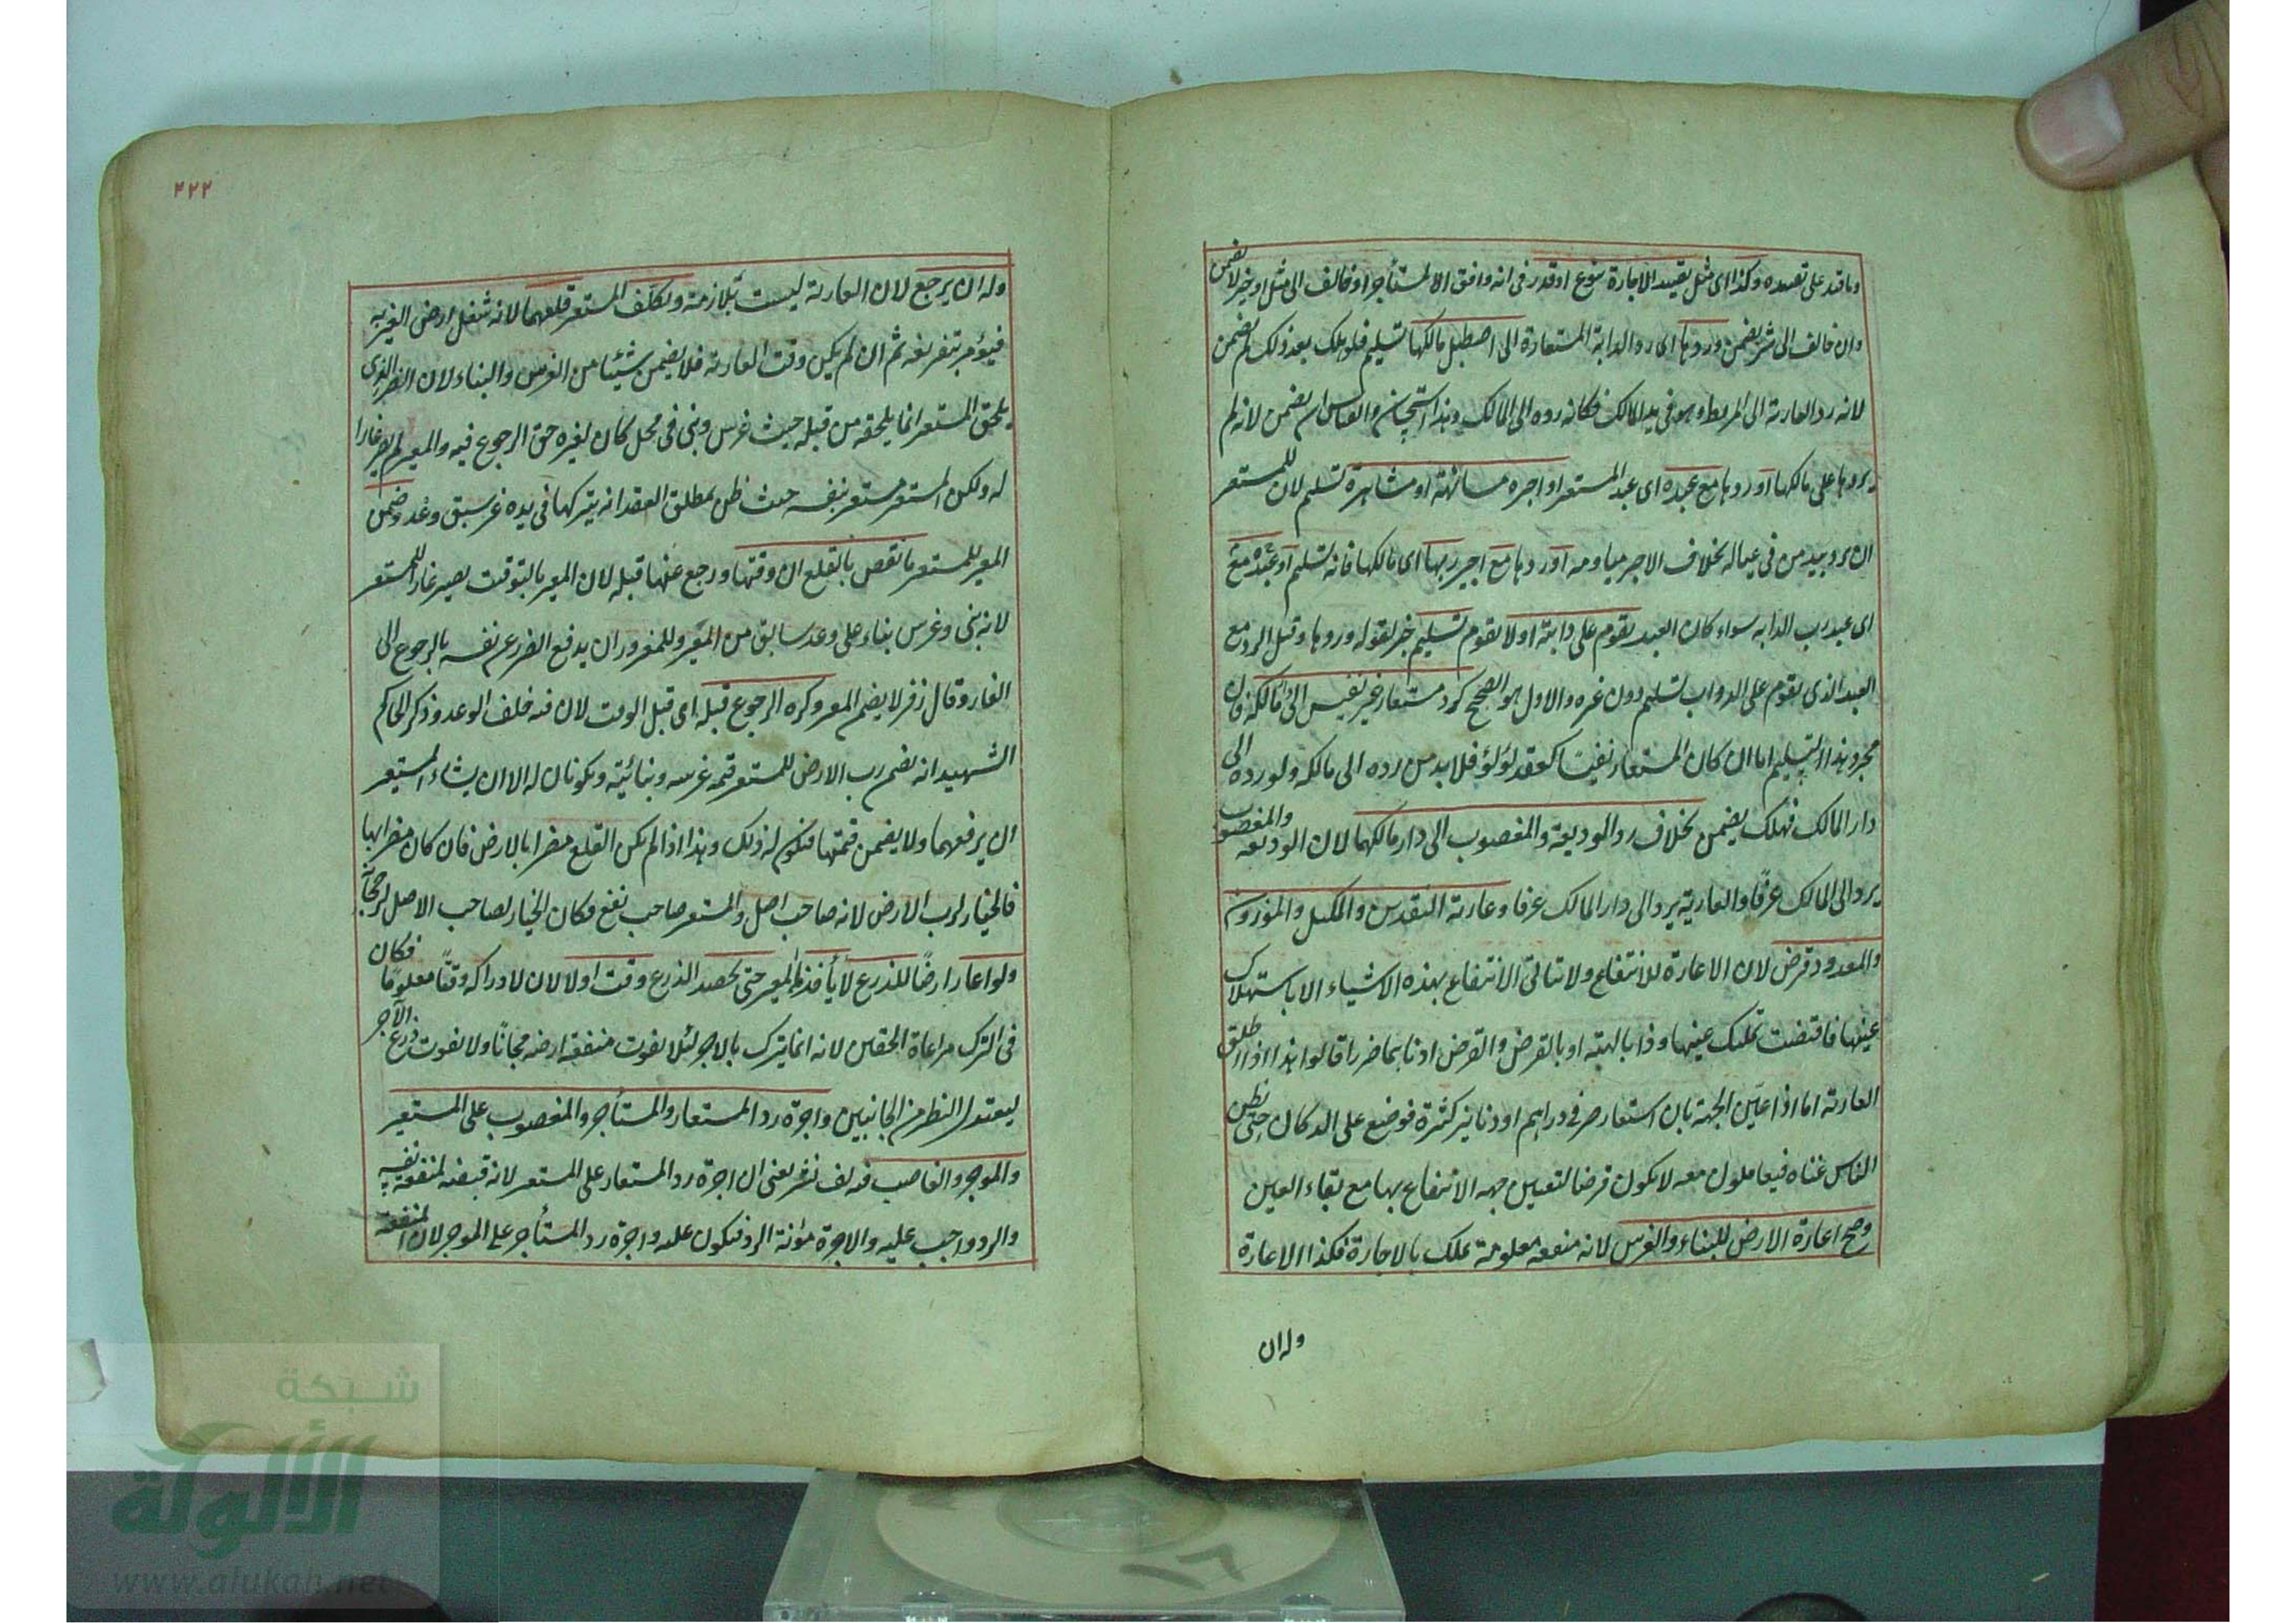 وما قيد على تقييده وكذا اى مثل تقييد الاجارة بنوع او قدر فى انه وافق الا لمستأجر او خالف الى مثل او خير لا يضمن
وان خالف الى شر يضمن وردها اى رد الدابة المستعارة الى اصطبل مالكها تسليم فلو هلك بعد ذلك لم يضمن
لانه رد العارية الى المربط وهو فى يد المالك فكانه رده الى المالك وهذا استحسان والقياس ان يضمن لانه لم
يردها على مالكها او ردها مع عبده اى عبد المستعير او اجيره مسانهة او مشاهرة تسليم لان للمستعير
ان يرد بيد من فى عياله بخلاف الاجير مياومه او ردها مع اجير ربها اى مالكها فانه تسليم او عبده مع
اى عبد رب الدابه سواء كان العبد يقوم على دابته او لا يقوم تسليم خبر لقوله وردها وقيل الرد مع
العبد الذى يقوم على الدواب تسليم دون غيره والاول هو الصحيح كرد مستعار غير نفيس الى دار مالكه فان
مجرد هذا التسليم اما ان كان المستعار نفيسا كعقد لؤلؤ فلا بد من رده الى مالكه ولو رده الى
دار المالك فهلك يضمن بخلاف رد الوديعة والمغصوب الى دار مالكهما لان الوديعه والمغصوب
يرد الى المالك عرفا والعارية يرد الى دار المالك عرفا وعارية النقدين والمكيل والموزون
والمعدود قرض لان الاعارة للانتفاع ولا تتأتى الانتفاع بهذه الاشياء الا باستهلاك
عينها فاقتضت تمليك عينها وذا بالهبة او بالقرض والقرض ادناهما ضررا قالوا هذا اذا اطلق
العارية اما اذا عين الجهة بان استعار صرفى دراهم او دنانير كثيرة فوضع على الدكان حتى يظن
الناس غناه فيعاملون معه لا يكون قرضا لتعيين جهه الانتفاع بها مع بقاء العين
وصح اعارة الارض للبناء والغرس لانه منفعه معلومة تملك بالاجارة فكذا الاعارة
وله ان
٤٢٢
وله ان يرجع لان العارية ليست بلازمة وتكلف المستعير قلعهما لانه شغل ارض الغير به
فيؤمر بتفريغه ثم ان لم يكن وقت العارية فلا يضمن شيئا من الغرس والبناء لان الضرر الذى
يلحق المستعير انما يلحقه من قبله حيث غرس وبنى فى محل كان لغيره حق الرجوع فيه والمعير لم يصر غارا
له ولكن المستعير مستعير بنفسه حيث ظن بمطلق العقد انه يتركها فى يده غير سبق وعد وضمن
المعير للمستعير ما نقص بالقلع ان وقتها ورجع عنها قبله لان المعير بالتوقيت يصير غارا للمستعير
لانه بنى وغرس بناء على وعد سابق من المعير وللمغرور ان يدفع الضرر عن نفسه بالرجوع الى
الغار وقال زفر لا يضمن المعير وكره الرجوع قبله اى قبل الوقت لان فيه خلف الوعد وذكر الحاكم
الشهيد انه يضمن رب الارض للمستعير قيمة غرسه وبنائيته ويكونان له الا ان يشاء المستعير
ان يرفعهما ولا يضمن قيمتها فيكون له ذلك وهذا اذا لم يكن القلع مضرا بالارض فان كان مضرا بها
فالخيار لرب الارض لانه صاحب اصل والمستعير صاحب نفع فكان الخيار لصاحب الاصل ترجحا
ولو اعار ارضا للزرع لا يأخذها المعير حتى يحصد الزرع وقت او لا لان لادراكه وقتا معلوما فكان
فى الترك مراعاة الحقين لانه انما يترك بالاجر لئلا يفوت منفعة ارضه مجانا ولا يفوت زرع الآجر
ليعتدل النظر من الجانبين واجرة رد المستعار والمستأجر والمغصوب على المستعير
والموجر والغاصب فيه لف نشر يعنى ان اجرة رد المستعار على المستعير لانه قبضه لمنفعة نفسه
والرد واجب عليه والاجرة مؤنة الرد فيكون عليه واجرة رد المستأجر على الموجر لان المنفعة
شبكة
الألوكة
www.alukah.net
١٦